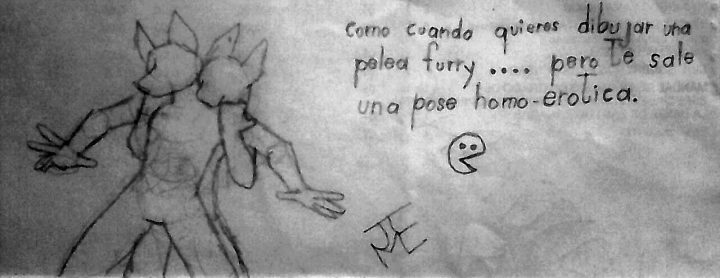 como cuando quieres dibujar una
pelea furry .... pero te sale
una pose homo-erotica.